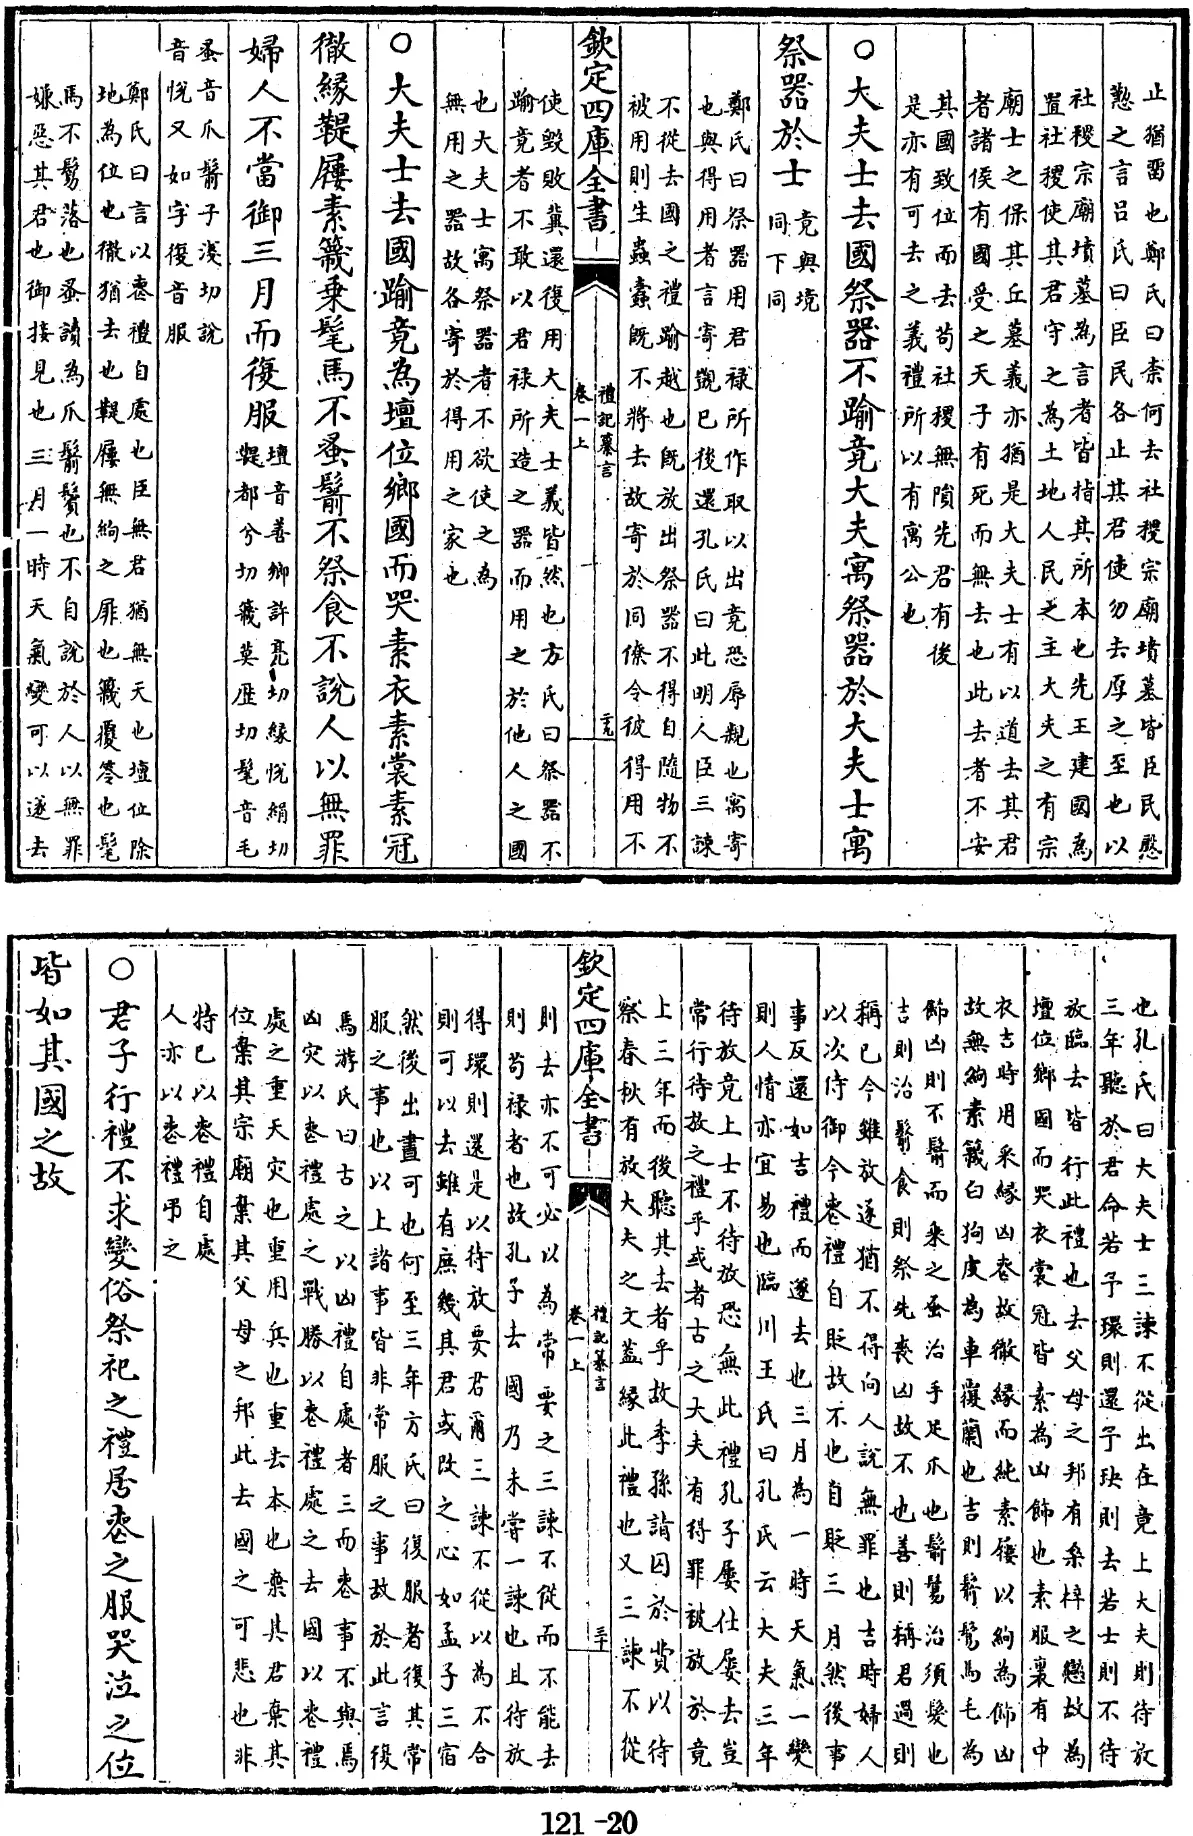 止猶畱也鄭氏曰柰何去社稷宗廟墳墓皆臣民慇
懃之言呂氏曰臣民各止其君使勿去厚之至也以
社稷宗廟墳墓為言者皆指其所本也先王建國為
置社稷使其君守之為土地人民之主大夫之有宗
廟士之保其丘墓義亦猶是大夫士有以道去其君
者諸侯有國受之天子有死而無去也此去者不安
其國致位而去苟社稷無隕先君有後
是亦有可去之義禮所以有寓公也
○大夫士去國祭器不踰竟大夫寓祭器於大夫士寓
祭器於士
竟與境
同下同
鄭氏曰祭器用君禄所作取以出竟恐辱親也寓寄
也與得用者言寄覬已後還孔氏曰此明人臣三諫
不從去國之禮踰越也既放出祭器不得自隨物不
被用則生蟲蠹既不將去故寄於同僚令彼得用不
欽定四庫全書
禮記纂言
卷一上
二十九
使毀敗冀還復用大夫士義皆然也方氏曰祭器不
踰竟者不敢以君禄所造之器而用之於他人之國
也大夫士寓祭器者不欲使之為
無用之器故各寄於得用之家也
○大夫士去國踰竟為壇位鄉國而哭素衣素裳素冠
徹緣鞮屨素簚乗髦馬不蚤鬋不祭食不說人以無罪
婦人不當御三月而復服
壇音善鄉許亮切緣悦絹切
鞮都兮切簚莫歴切髦音毛
蚤音爪鬋子淺切說
音悅又如字復音服
鄭氏曰言以䘮禮自處也臣無君猶無天也壇位除
地為位也徹猶去也鞮屨無絇之屝也簚覆笭也髦
馬不鬄落也蚤讀為爪鬋鬢也不自說於人以無罪
嫌惡其君也御接見也三月一時天氣變可以遂去
也孔氏曰大夫士三諫不從出在竟上大夫則待放
三年聽於君命若予環則還予玦則去若士則不待
放臨去皆行此禮也去父母之邦有桑梓之戀故為
壇位鄉國而哭衣裳冠皆素為凶飾也素服裏有中
衣吉時用采緣凶䘮故徹緣而純素鞮以絇為飾凶
故無絇素簚白狗皮為車覆蘭也吉則鬋鬄馬毛為
飾凶則不鬋而乘之蚤治手足爪也鬋鬄治須髮也
吉則治鬋食則祭先喪凶故不也善則稱君過則
稱已今雖放逐猶不得向人說無罪也吉時婦人
以次侍御今䘮禮自貶故不也自貶三月然後事
事反還如吉禮而遂去也三月為一時天氣一變
則人情亦宜易也臨川王氏曰孔氏云大夫三年
待放竟上士不待放恐無此禮孔子屢仕屢去豈
常行待放之禮乎或者古之大夫有得罪被放於竟
上三年而後聽其去者乎故季孫請囚於費以待
察春秋有放大夫之文蓋緣此禮也又三諫不從
欽定四庫全書
禮記纂言
卷一上
三十
則去亦不可必以為常要之三諫不從而不能去
則苟禄者也故孔子去國乃未嘗一諫也且待放
得環則還是以待放要君爾三諫不從以為不合
則可以去雖有庶幾其君或改之心如孟子三宿
然後出晝可也何至三年方氏曰復服者復其常
服之事也以上諸事皆非常服之事故於此言復
馬游氏曰古之以凶禮自處者三而䘮事不與焉
凶灾以䘮禮處之戰勝以䘮禮處之去國以䘮禮
處之重天灾也重用兵也重去本也棄其君棄其
位棄其宗廟棄其父母之邦此去國之可悲也非
特已以䘮禮自處
人亦以䘮禮弔之
○君子行禮不求變俗祭祀之禮居䘮之服哭泣之位
皆如其國之故
121-20